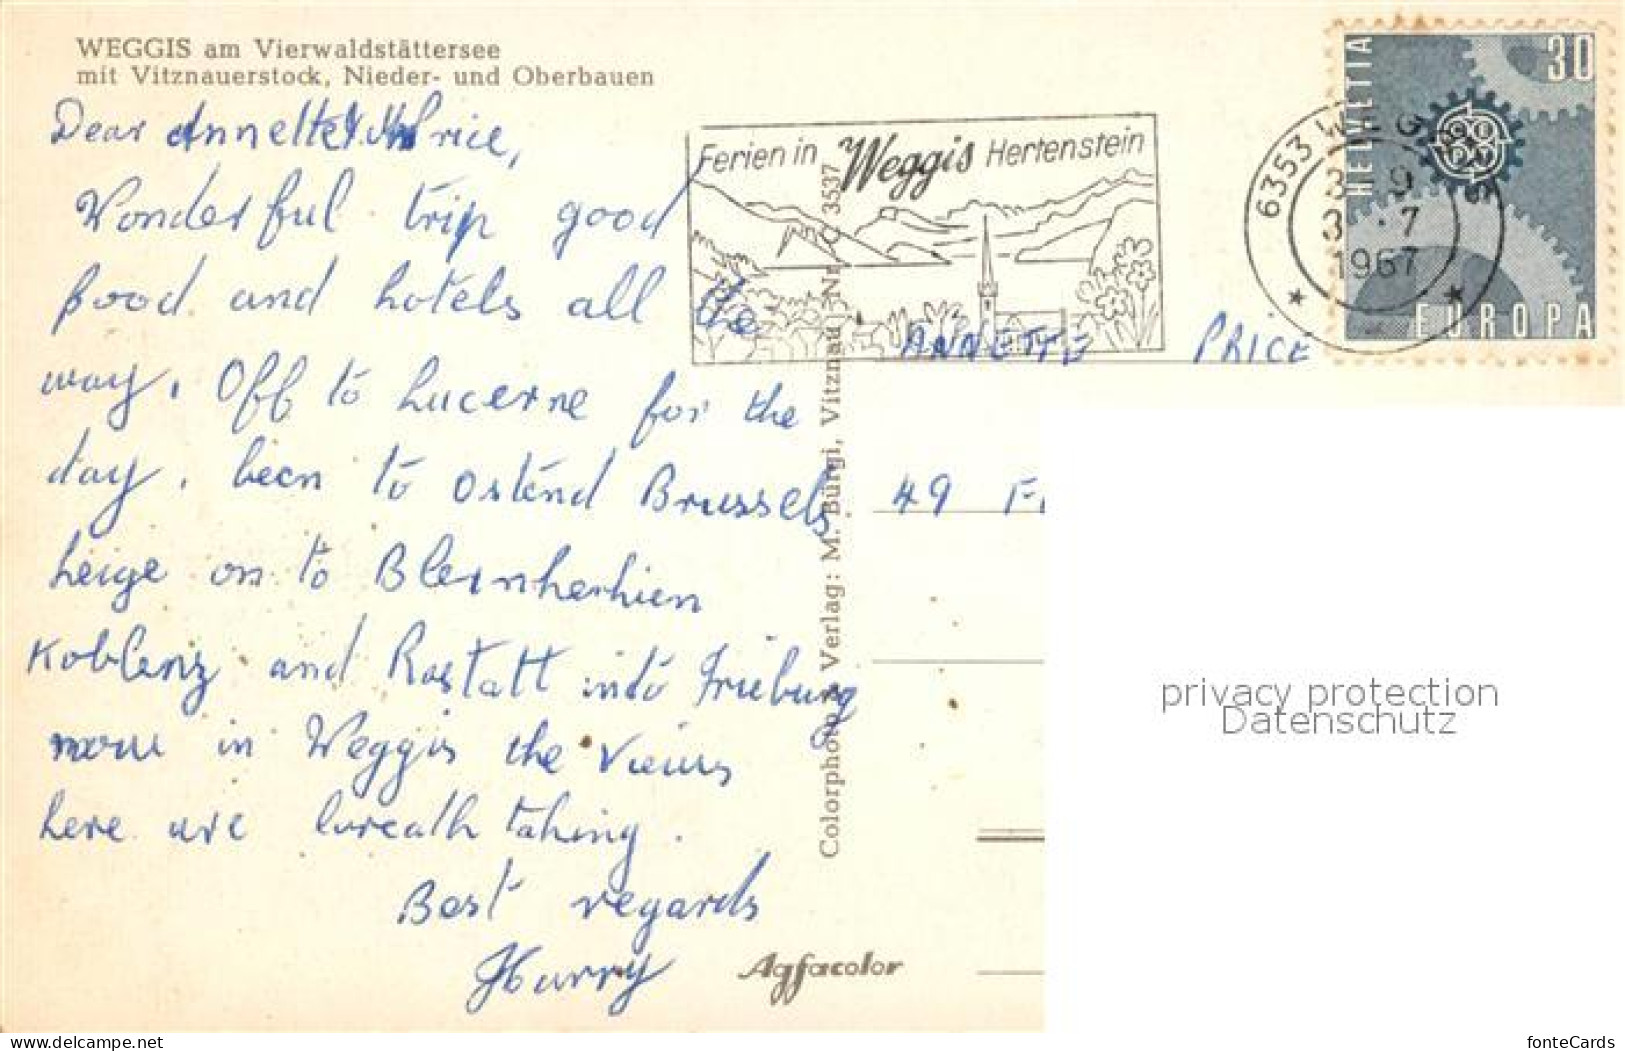 WEGGIS am Vierwaldstättersee
mit Vitznauerstock, Nieder- und Oberbauen
Dear Annette Price,
Wonderful trip good
food and hotels all the
way. Off to Lucerne for the
day. been to Ostend Brussels
heige on to
Koblenz and Rastatt into Frieburg
now in Weggis the Views
here are breath taking.
Best regards
Harry
Ferien in Weggis Hertenstein
6353 WEGGIS
1967
HELVETIA
30
EUROPA
ANNETTE PRICE
49
Colorphoto Verlag: M. Bürgi, Vitznau Nr. C 3537
Agfacolor
privacy protection
Datenschutz
www.delcampe.net
fonteCards